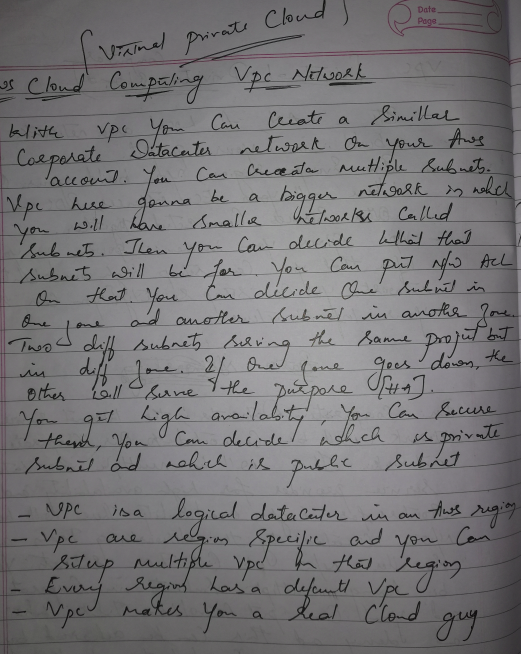 Date
Page
[Virtual Private Cloud]
ws Cloud Computing Vpc Network
With vpc you Can Create a Similar
Corporate Datacater network On your Aws
account. You Can Creata multiple Subnets.
Vpc here gonna be a bigger network in which
you will have smaller networks Called
Subnets. Then you Can decide What that
Subnets will be for. You Can put N/w ACL
On that. You Can decide One Subnet in
One zone and another Subnet in another Zone.
Two diff subnets serving the Same project but
in diff zone. If One zone goes down, the
Other will serve the purpose [HA].
You get high availabity, You Can Secure
them, You Can decide which is private
Subnet and which is public Subnet
- VPC is a logical datacater in an Aws region
- Vpc are region Specific and you Can
Setup multiple Vpc in that region
- Every region has a default Vpc
- Vpc makes You a real Cloud guy